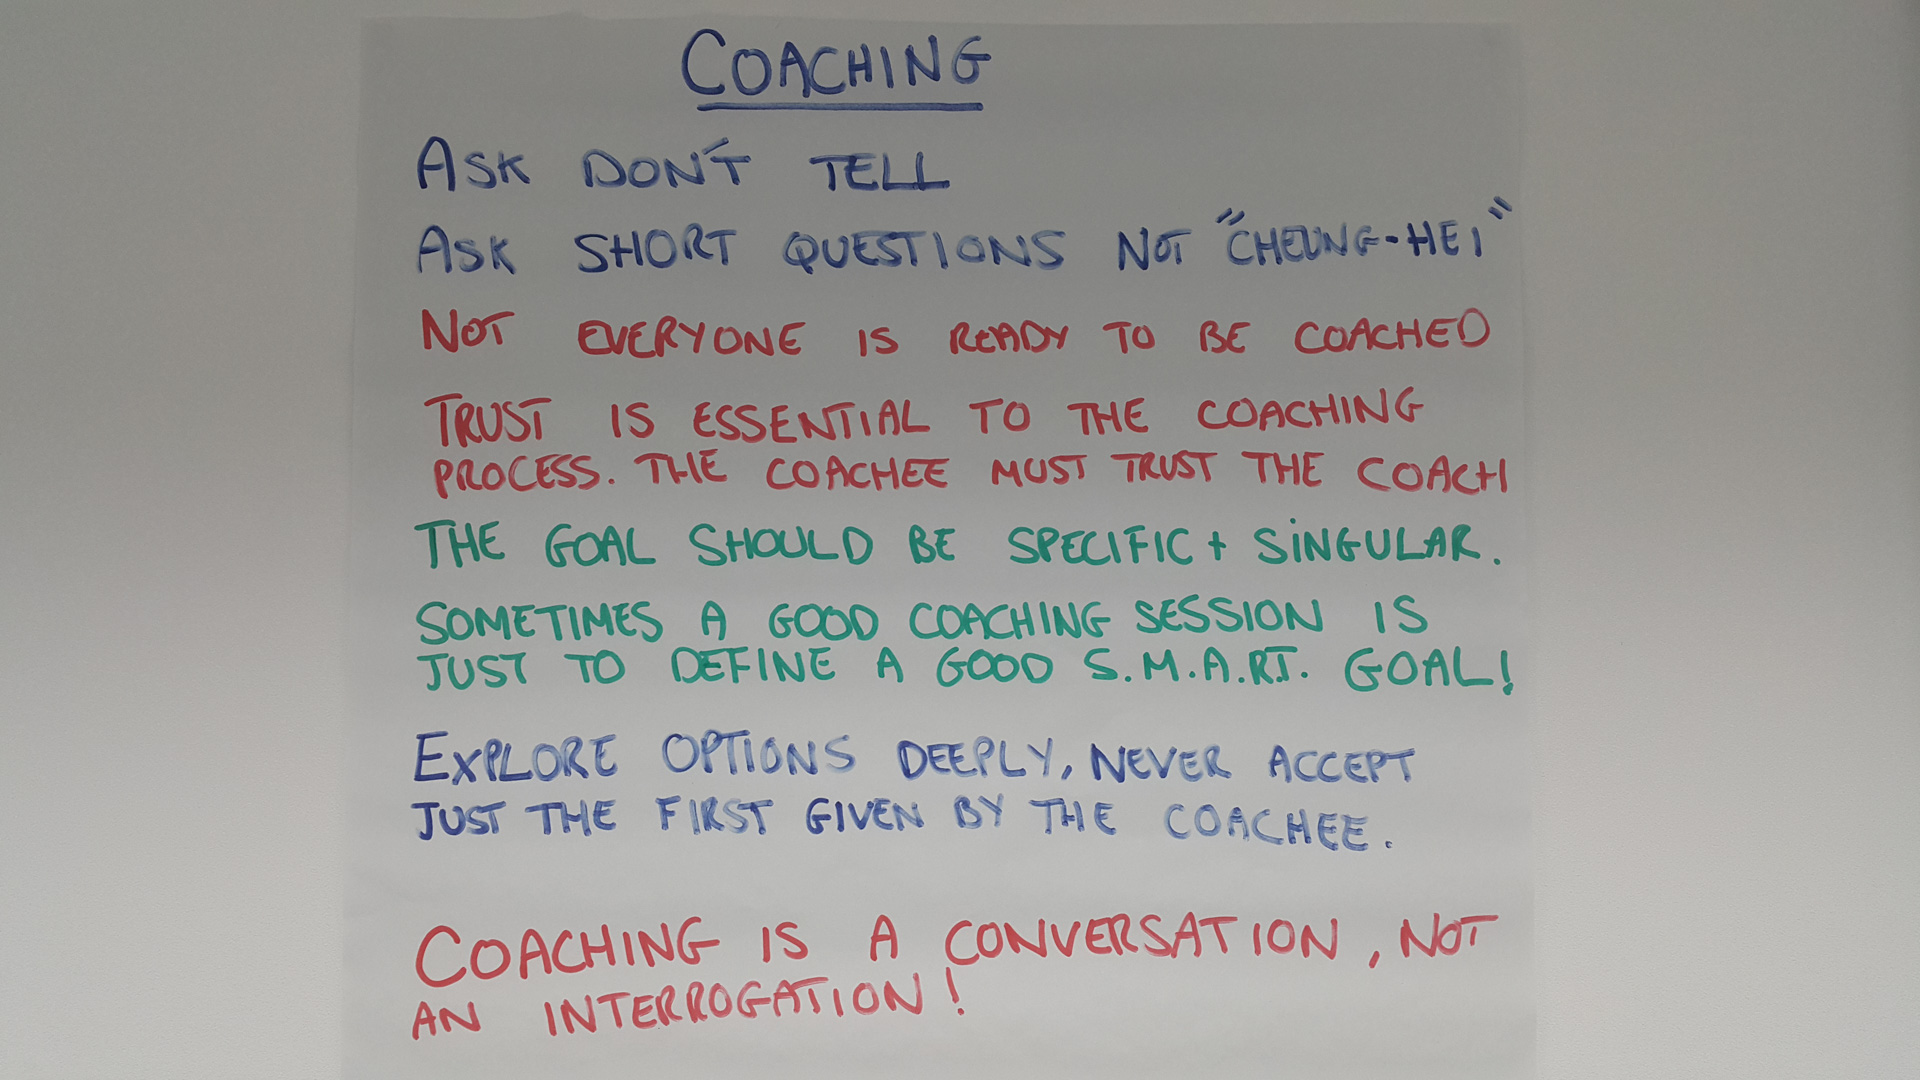 COACHING
ASK DON'T TELL
ASK SHORT QUESTIONS NOT "CHEUNG-HEI"
NOT EVERYONE IS READY TO BE COACHED
TRUST IS ESSENTIAL TO THE COACHING
PROCESS. THE COACHEE MUST TRUST THE COACH
THE GOAL SHOULD BE SPECIFIC + SINGULAR.
SOMETIMES A GOOD COACHING SESSION IS
JUST TO DEFINE A GOOD S.M.A.R.T. GOAL!
EXPLORE OPTIONS DEEPLY, NEVER ACCEPT
JUST THE FIRST GIVEN BY THE COACHEE.
COACHING IS A CONVERSATION, NOT
AN INTERROGATION!